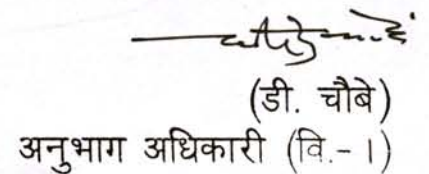 (डी. चौबे)
अनुभाग अधिकारी (वि.-।)